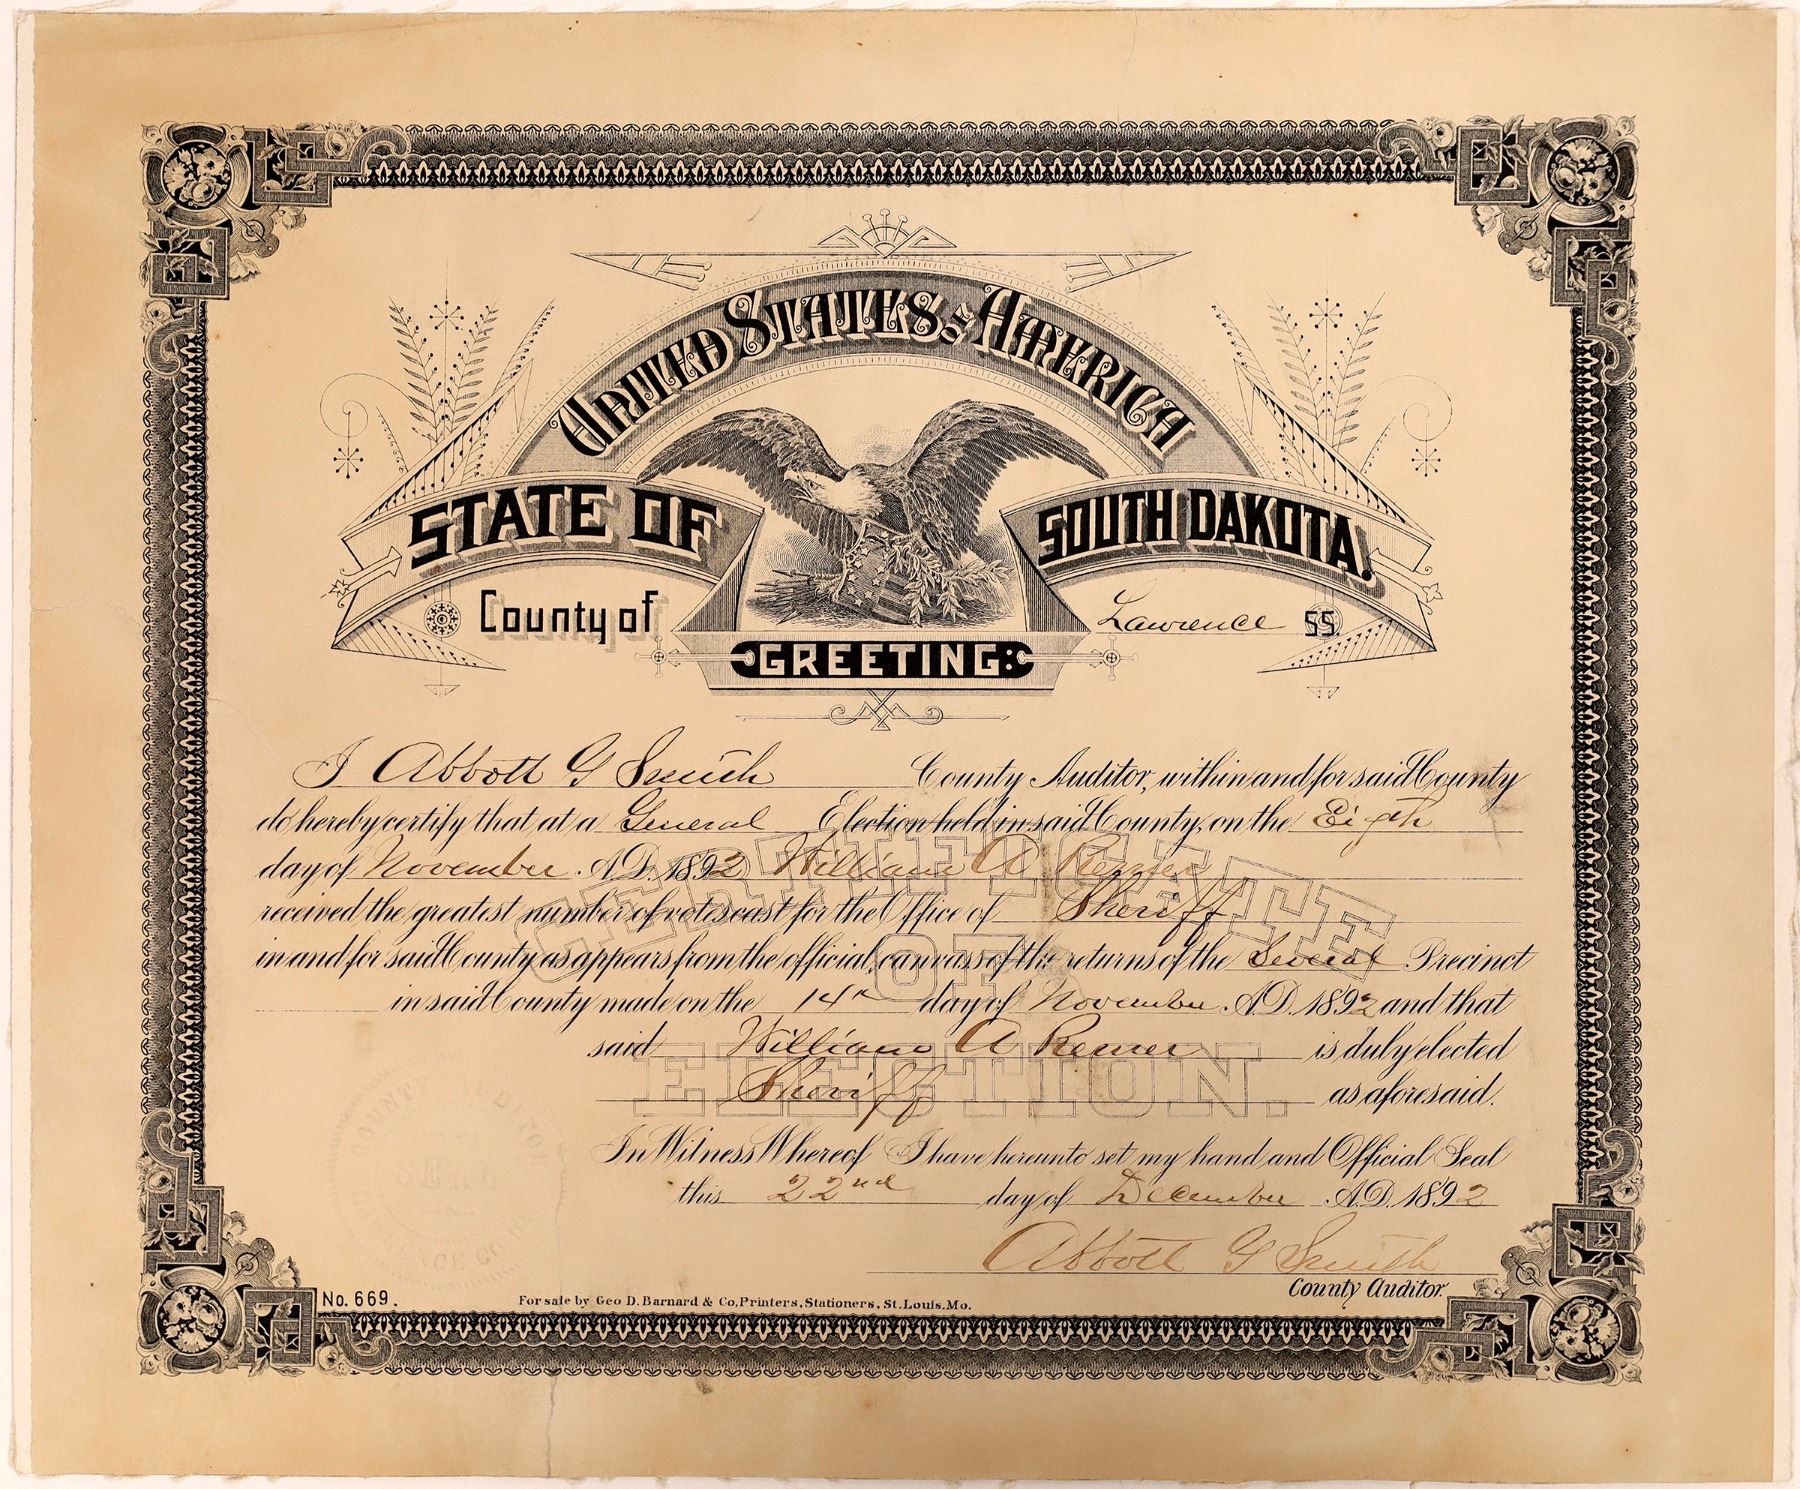 UNITED STATES OF AMERICA
STATE OF SOUTH DAKOTA.
County of Lawrence SS.
GREETING:
I Abbott G Smith County Auditor, within and for said County
do hereby certify that at a General Election held in said County, on the Eigth
day of November A.D. 1892 William A Remer
received the greatest number of votes cast for the Office of Sheriff
in and for said County as appears from the official canvass of the returns of the Several Precinct
in said County made on the 14th day of November A.D. 1892 and that
said William A Remer is duly elected
Sheriff as aforesaid.
CERTIFICATE
OF
ELECTION.
In Witness Whereof I have hereunto set my hand and Official Seal
this 22nd day of December A.D. 1892
Abbott G Smith
County Auditor.
COUNTY AUDITOR
SEAL
No. 669.
For sale by Geo D. Barnard & Co, Printers, Stationers, St. Louis. Mo.